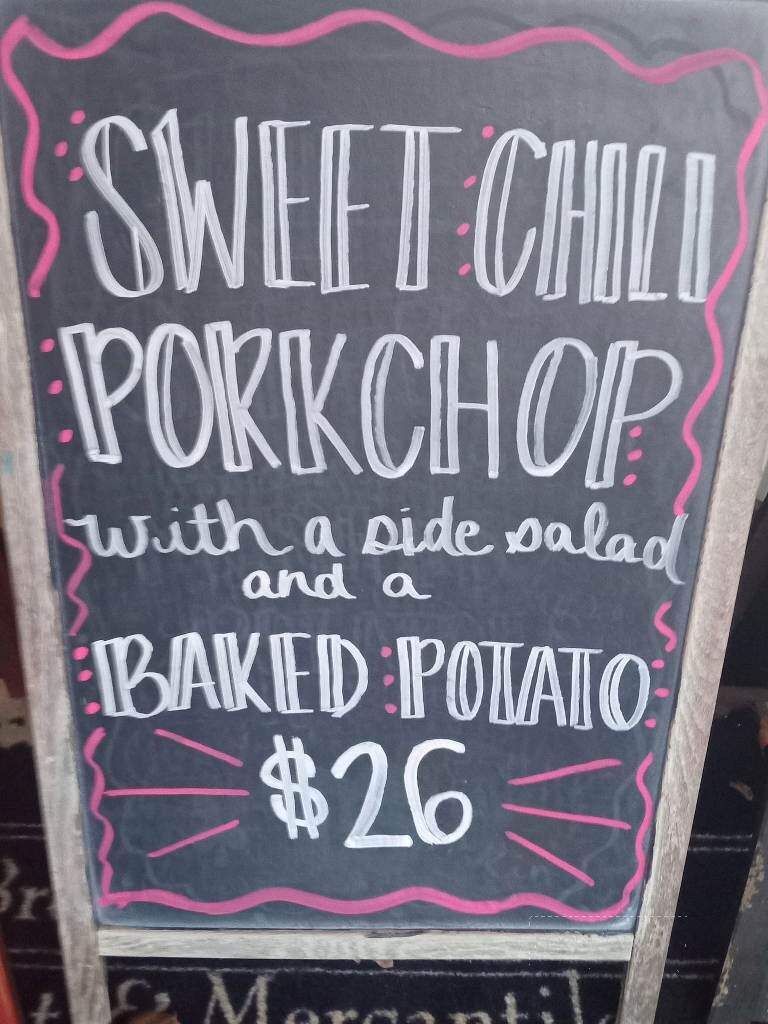 SWEET CHILI
PORKCHOP
with a side salad
and a
BAKED POTATO
$26
& Mercantile